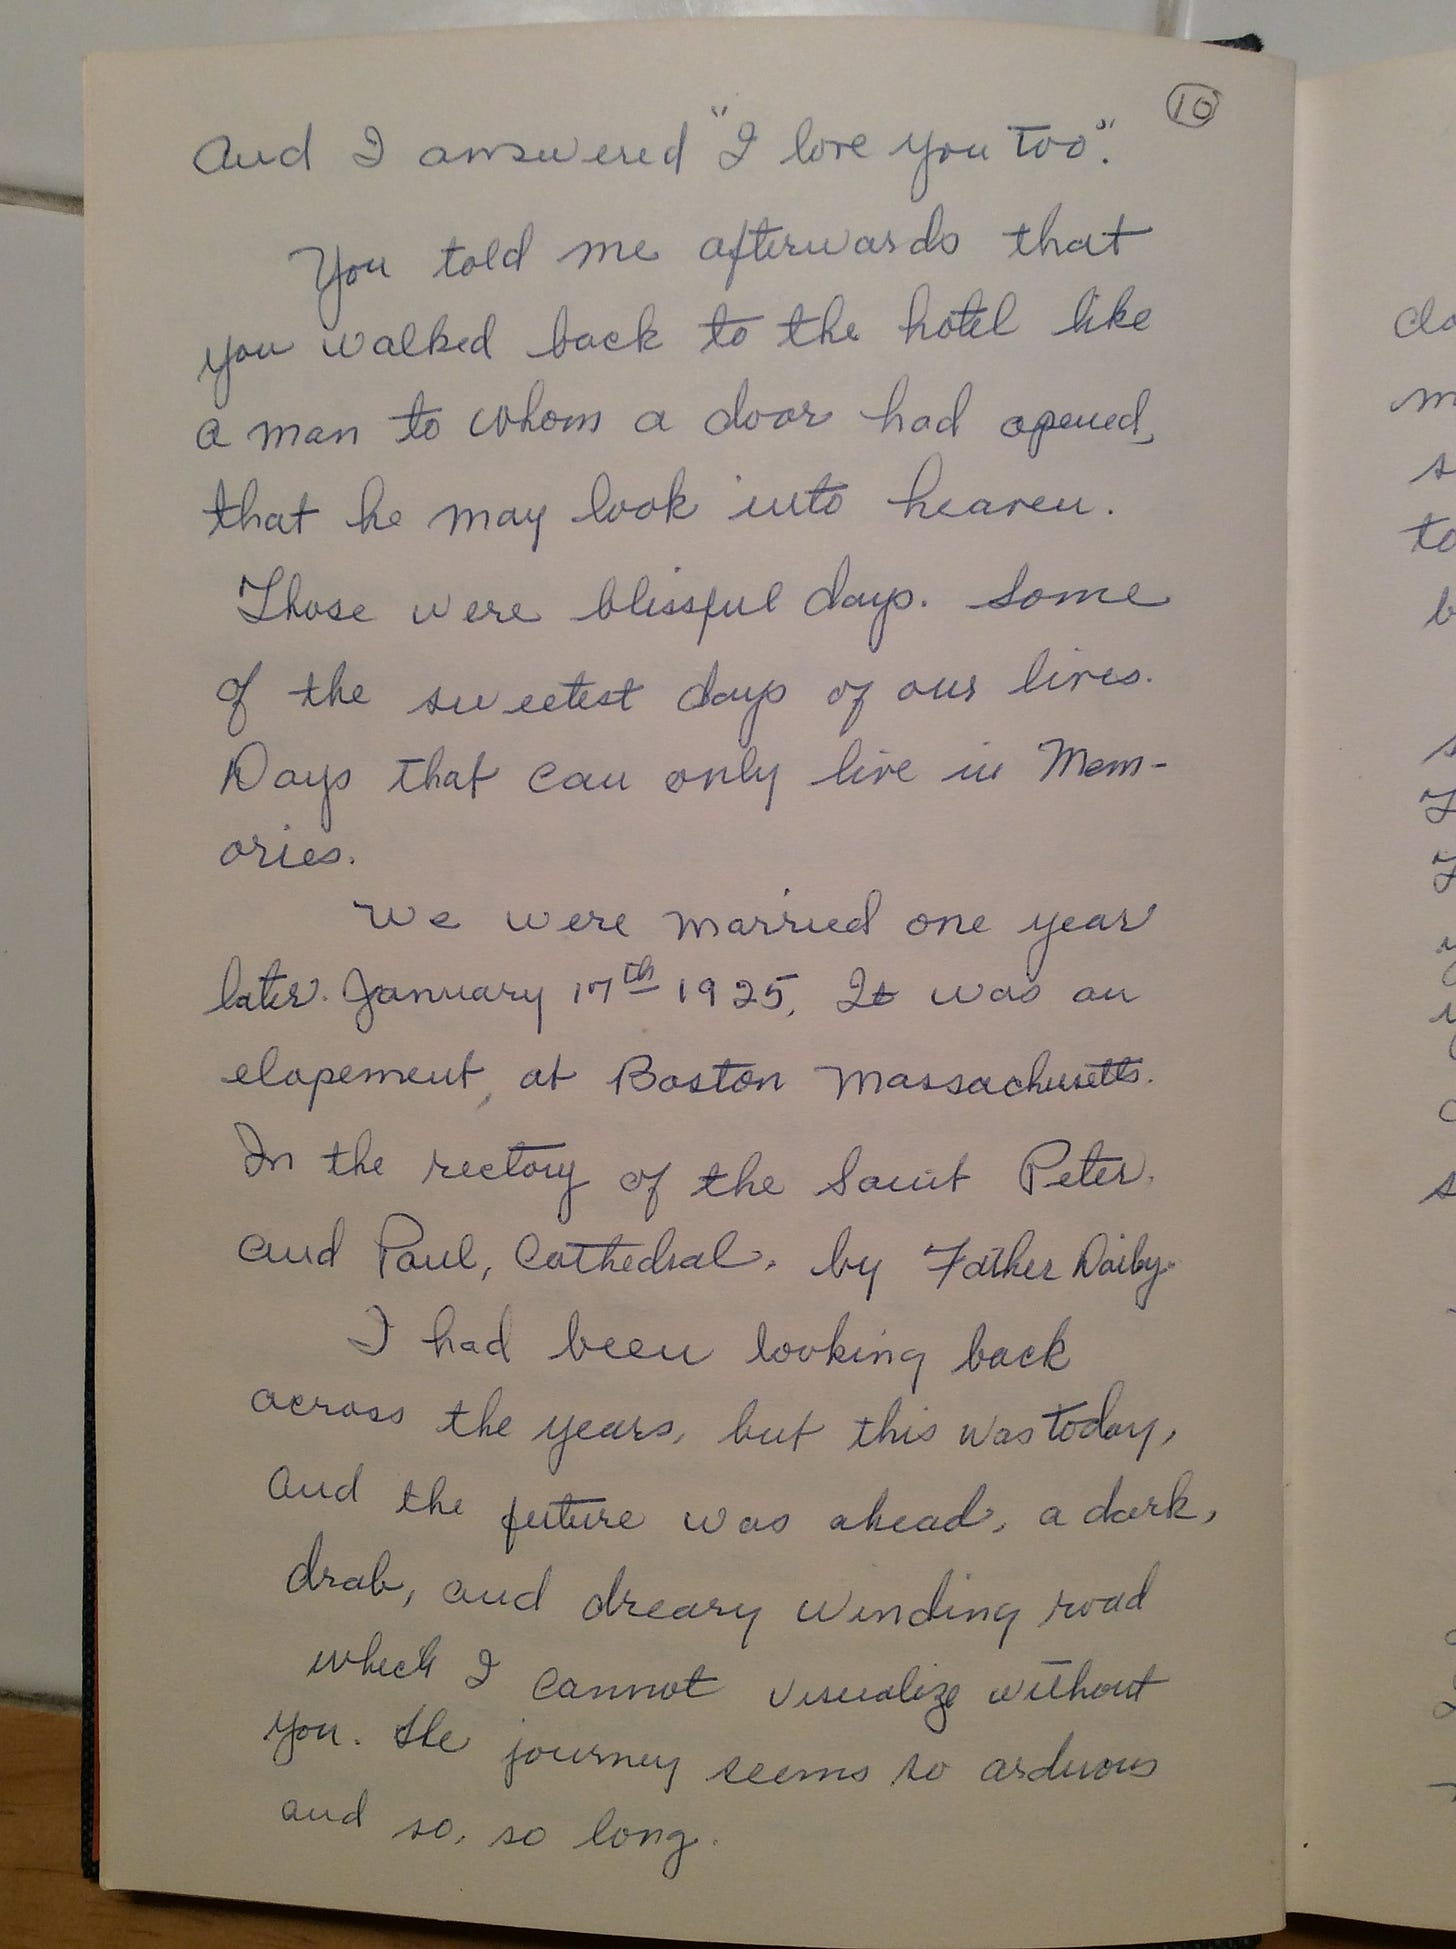 10
And I answered "I love you too".
You told me afterwards that
you walked back to the hotel like
a man to whom a door had opened,
that he may look into heaven.
Those were blissful days. Some
of the sweetest days of our lives.
Days that can only live in Mem-
ories.
We were married one year
later. January 17th 1925, It was an
elopement, at Boston Massachusetts.
In the rectory of the Saint Peter.
and Paul, Cathedral, by Father Daiby.
I had been looking back
across the years, but this was today,
and the future was ahead, a dark,
drab, and dreary winding road
which I cannot visualize without
you. The journey seems so arduous
and so, so long.
to